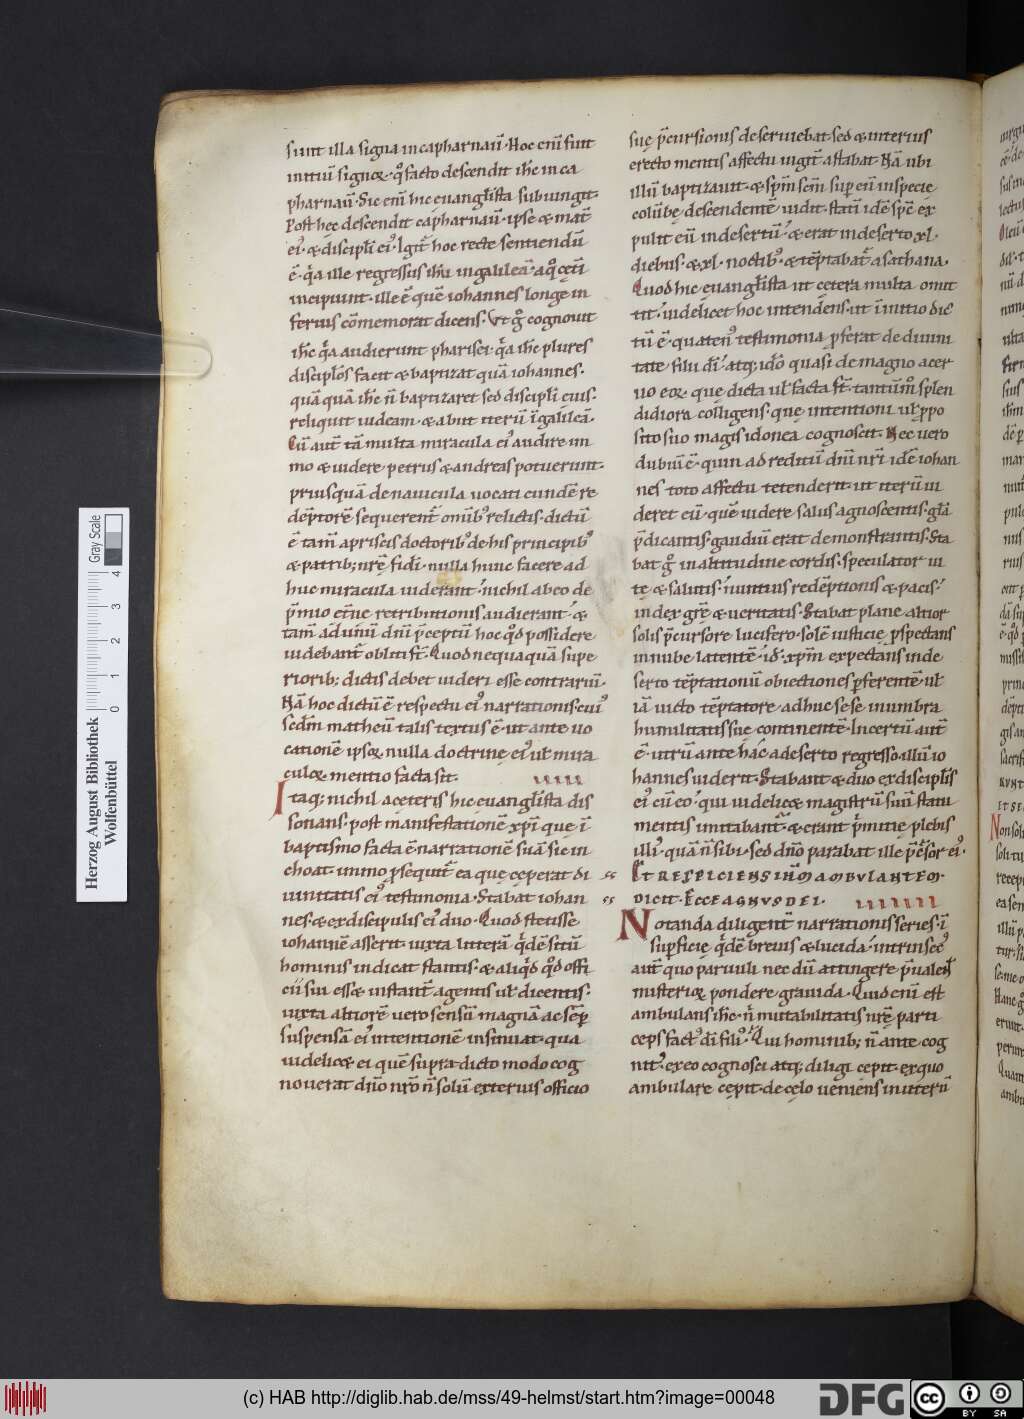 sunt illa signa incapharnaū. Hoc enī sunt
initiū signoꝝ. qͦ facto descendit ih̄c in ca
pharnaū. Sic enī hic euangl̄ista subiungit.
Post hęc descendit capharnaū. ipse & mat̄
ei'. & discipl̄i ei'. Igit̄ hoc recte sentiendū
ē. q̄a ille regressus ih̄u ingalileā. aqͦ cęti
incipiunt. ille ē quē iohannes longe in
ferius cōmemorat dicens. Vt gͦ cognouit
ih̄c q̄a audierunt pharisei. q̄a ih̄c plures
discipl̄os facit & baptizat quā iohannes.
quā quā ih̄c n̄ baptizaret sed discipl̄i eius.
reliquit iudeam. & abiit iterū ī galileā.
Cū aut̄ tā multa miracula ei' audire im
mo & uidere petrus & andreas potuerunt.
priusquā de nauicula uocati eundē re
dēptorē sequerent̄ omīb' relictis. dictū
ē tam̄ apriscis doctorib' de his principib'
& patrib; nr̄ę fidi. nulla hunc facere ad
huc miracula uiderant. nichil abeo de
p̄mio et̄ne retributionis audierant. &
tam̄ ad unū dn̄i p̄ceptū hoc qͦd possidere
uidebant̄ obliti st̄. Quod nequaquā supe
riorib; dictis debet uideri esse contrariū.
Nā hoc dictū ē respectu ei' narrationis cui'
scdm̄ matheū talis textus ē. ut ante uo
cationē ipsoꝝ nulla doctrinę ei' ul̄ mira
culoꝝ mentio facta sit.
Itaq; nichil aceteris hic euangl̄ista dis
sonans. post manifestationē xp̄i que ī
baptismo facta ē narrationē suā sic in
choat. immo p̄sequit̄ ea que cęperat di
uinitatis ei' testimonia. Stabat iohan
nes. & exdiscipulis ei' duo. Quod stetisse
iohannē asserit. iuxta litterā q̄dē sitū
hominis indicat stantis. & aliq̄d qͦd offi
cii sui ess& instant̄ agentis ul̄ dicentis.
iuxta altiorē uero sensū magnā ac sēp̄
suspensā ei' intentionē insinuat. qua
uidelic& ei quē supra dicto modo cog
nouerat dn̄o nr̄o n̄ solū exterius officio
suę p̄cursionis deseruiebat. sed & interius
erecto mentis affectu uigit̄ astabat. Nā ubi
illū baptizauit. & sp̄m scm̄ sup̄ eū inspecie
colūbę descendentē uidit. statī idē sp̄c ex
pulit eū indesertū. & erat indeserto xl.
diebus. & xl. noctib'. & tēptabat̄ asathana.
Quod hic euangl̄ista ut cetera multa omit
tit. uidelicet hoc intendens. ut ī initio dic
tū ē. quaten' testimonia p̄ferat de diuini
tate filii dī. atq; idͦo quasi de magno acer
uo eoꝝ que dicta ul̄ facta st̄. tantūmͦ splen
didiora colligens. que intentioni ul̄ ppo
sito suo magis idonea cognoscit. Nec uero
dubiū ē. quin ad reditū dn̄i nr̄i idē iohan
nes toto affectu tetenderit. ut iterū ui
deret eū. quē uidere salus agnoscentis. gl̄a
p̄dicantis. gaudiū erat demonstrantis. Sta
bat gͦ in altitudine cordis. speculator ui
tę & salutis. nuntius redēptionis & pacis.
index gr̄ę & ueritatis. Stabat plane altior
solis p̄cursore lucifero. solē iusticie p̄spectans
in nube latentē. id. xp̄m expectans inde
serto tēptationū obiectiones p̄ferentē. ul̄
iā uicto tēptatore adhuc sese in umbra
humilitatis sue continentē. Incertū aut̄
ē. utrū ante hāc adeserto regresso illū io
hannes uiderit. Stabant & duo ex discipl̄is
ei' cū eo. qui uidelic& magistrū suū statu
mentis imitabant̄. & erant p̄mitię plebis
illi'. quā n̄ sibi. sed dn̄o parabat ille p̄c̄sor ei'.
ET RESPICIENS IH̄M AMBVLANTEM.
DICIT. ECCE AGNVS DEI.
Notanda diligent̄ narrationis series. ī
sup̄ficie q̄dē breuis & lucida. intrinsec'
aut̄ quo paruuli nec dū attingere p̄ualent
misterioꝝ pondere grauida. Quid enī est
ambulans ih̄c. n̄ mutabilitatis nr̄ę parti
ceps fact' dī fili'. Qui hominib; n̄ ante cog
nit'. ex eo cognosci atq; diligi cepit. ex quo
ambulare cepit. de cęlo ueniens in uterū
Herzog August Bibliothek
Wolfenbüttel
Gray Scale
0 1 2 3 4
(c) HAB http://diglib.hab.de/mss/49-helmst/start.htm?image=00048
DFG
cc BY SA